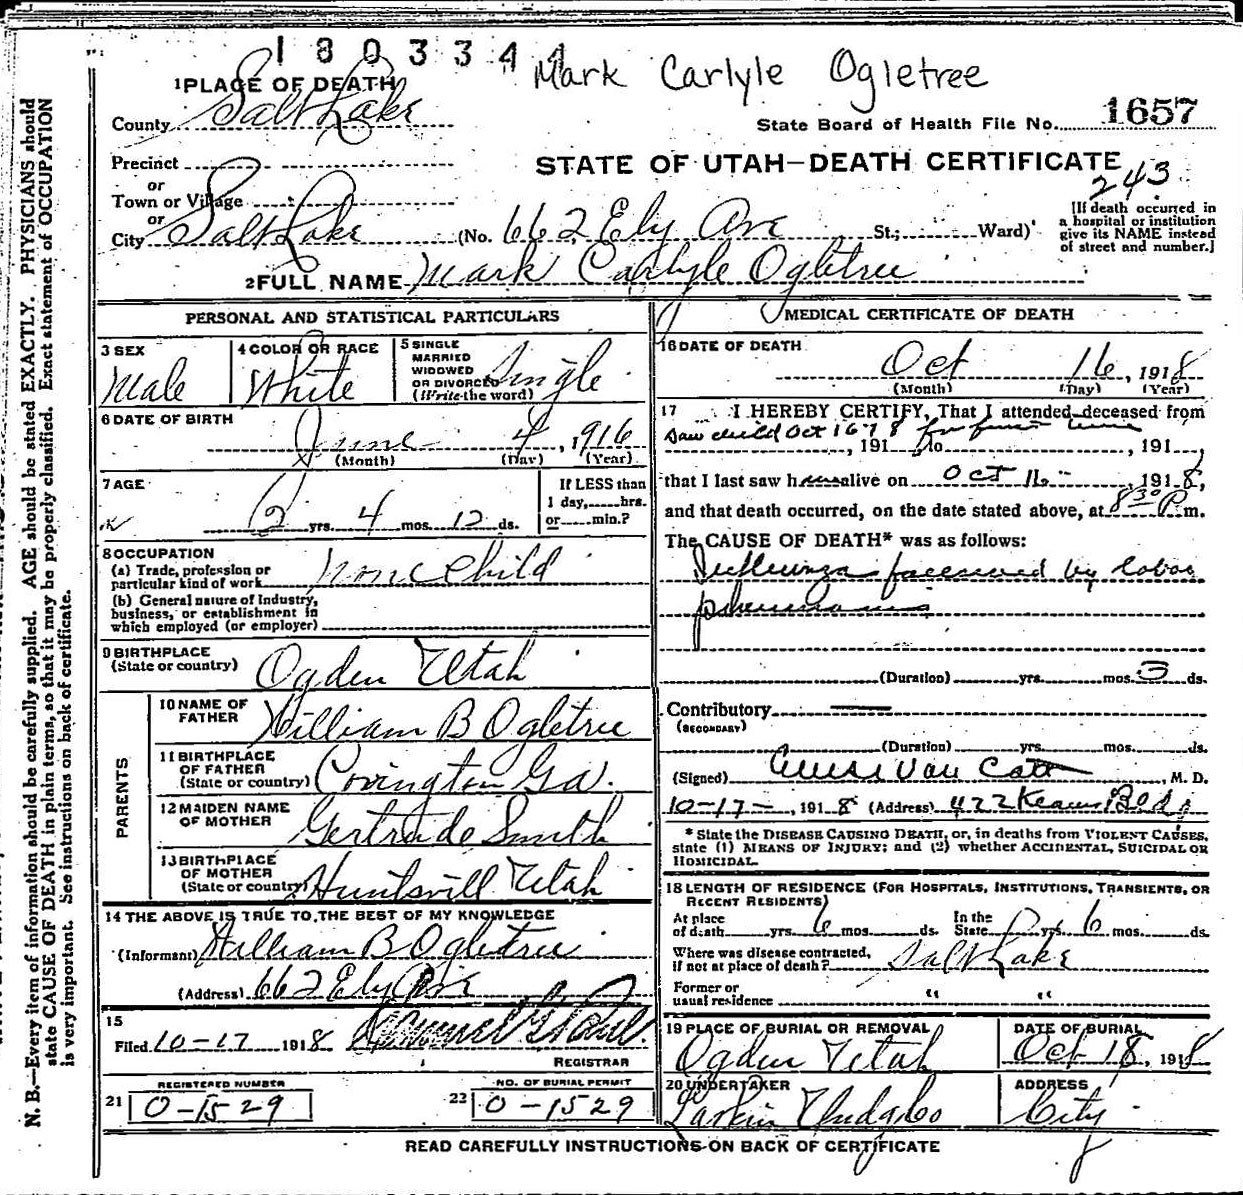 1803341
Mark Carlyle Ogletree
1 PLACE OF DEATH
County Salt Lake
State Board of Health File No. 1657
Precinct
STATE OF UTAH—DEATH CERTIFICATE
243
or
Town or Village
or
City Salt Lake (No. 662 Ely Ave St.; Ward)
[If death occurred in
a hospital or institution
give its NAME instead
of street and number.]
2 FULL NAME Mark Carlyle Ogletree
PERSONAL AND STATISTICAL PARTICULARS
3 SEX
Male
4 COLOR OR RACE
White
5 SINGLE
MARRIED
WIDOWED
OR DIVORCED
(Write the word)
Single
6 DATE OF BIRTH
June 4, 1916
(Month) (Day) (Year)
7 AGE
2 yrs. 4 mos. 12 ds.
If LESS than
1 day, hrs.
or min.?
8 OCCUPATION
(a) Trade, profession or
particular kind of work None Child
(b) General nature of Industry,
business, or establishment in
which employed (or employer)
9 BIRTHPLACE
(State or country) Ogden Utah
PARENTS
10 NAME OF
FATHER William B Ogletree
11 BIRTHPLACE
OF FATHER
(State or country) Covington Ga.
12 MAIDEN NAME
OF MOTHER Gertrude Smith
13 BIRTHPLACE
OF MOTHER
(State or country) Huntsvill Utah
14 THE ABOVE IS TRUE TO THE BEST OF MY KNOWLEDGE
(Informant) William B Ogletree
(Address) 662 Ely Ave
15
Filed 10-17 1918
REGISTRAR
REGISTERED NUMBER
21 0-1529
NO. OF BURIAL PERMIT
22 0-1529
MEDICAL CERTIFICATE OF DEATH
16 DATE OF DEATH
Oct 16, 1918
(Month) (Day) (Year)
17 I HEREBY CERTIFY, That I attended deceased from
Saw child Oct 16 18 for first time
, 191 , to , 191 ,
that I last saw h alive on Oct 16 - , 1918,
and that death occurred, on the date stated above, at 8 30 P m.
The CAUSE OF DEATH* was as follows:
Influenza followed by lobar
pneumonia
(Duration) yrs. mos. 3 ds.
Contributory —
(SECONDARY)
(Duration) yrs. mos. ds.
(Signed) Van Cott, M. D.
10-17-, 1918 (Address) 422 Kearns Bldg
* State the DISEASE CAUSING DEATH, or, in deaths from VIOLENT CAUSES,
state (1) MEANS OF INJURY; and (2) whether ACCIDENTAL, SUICIDAL OR
HOMICIDAL.
18 LENGTH OF RESIDENCE (FOR HOSPITALS, INSTITUTIONS, TRANSIENTS, OR
RECENT RESIDENTS)
At place
of death yrs. 6 mos. ds.
In the
State 2 yrs. 6 mos. ds.
Where was disease contracted,
if not at place of death? Salt Lake
Former or
usual residence " "
19 PLACE OF BURIAL OR REMOVAL
Ogden Utah
DATE OF BURIAL
Oct 18, 1918
20 UNDERTAKER
Larkin Undg Co
ADDRESS
City
READ CAREFULLY INSTRUCTIONS ON BACK OF CERTIFICATE
N. B.—Every item of information should be carefully supplied. AGE should be stated EXACTLY. PHYSICIANS should
state CAUSE OF DEATH in plain terms, so that it may be properly classified. Exact statement of OCCUPATION
is very important. See instructions on back of certificate.